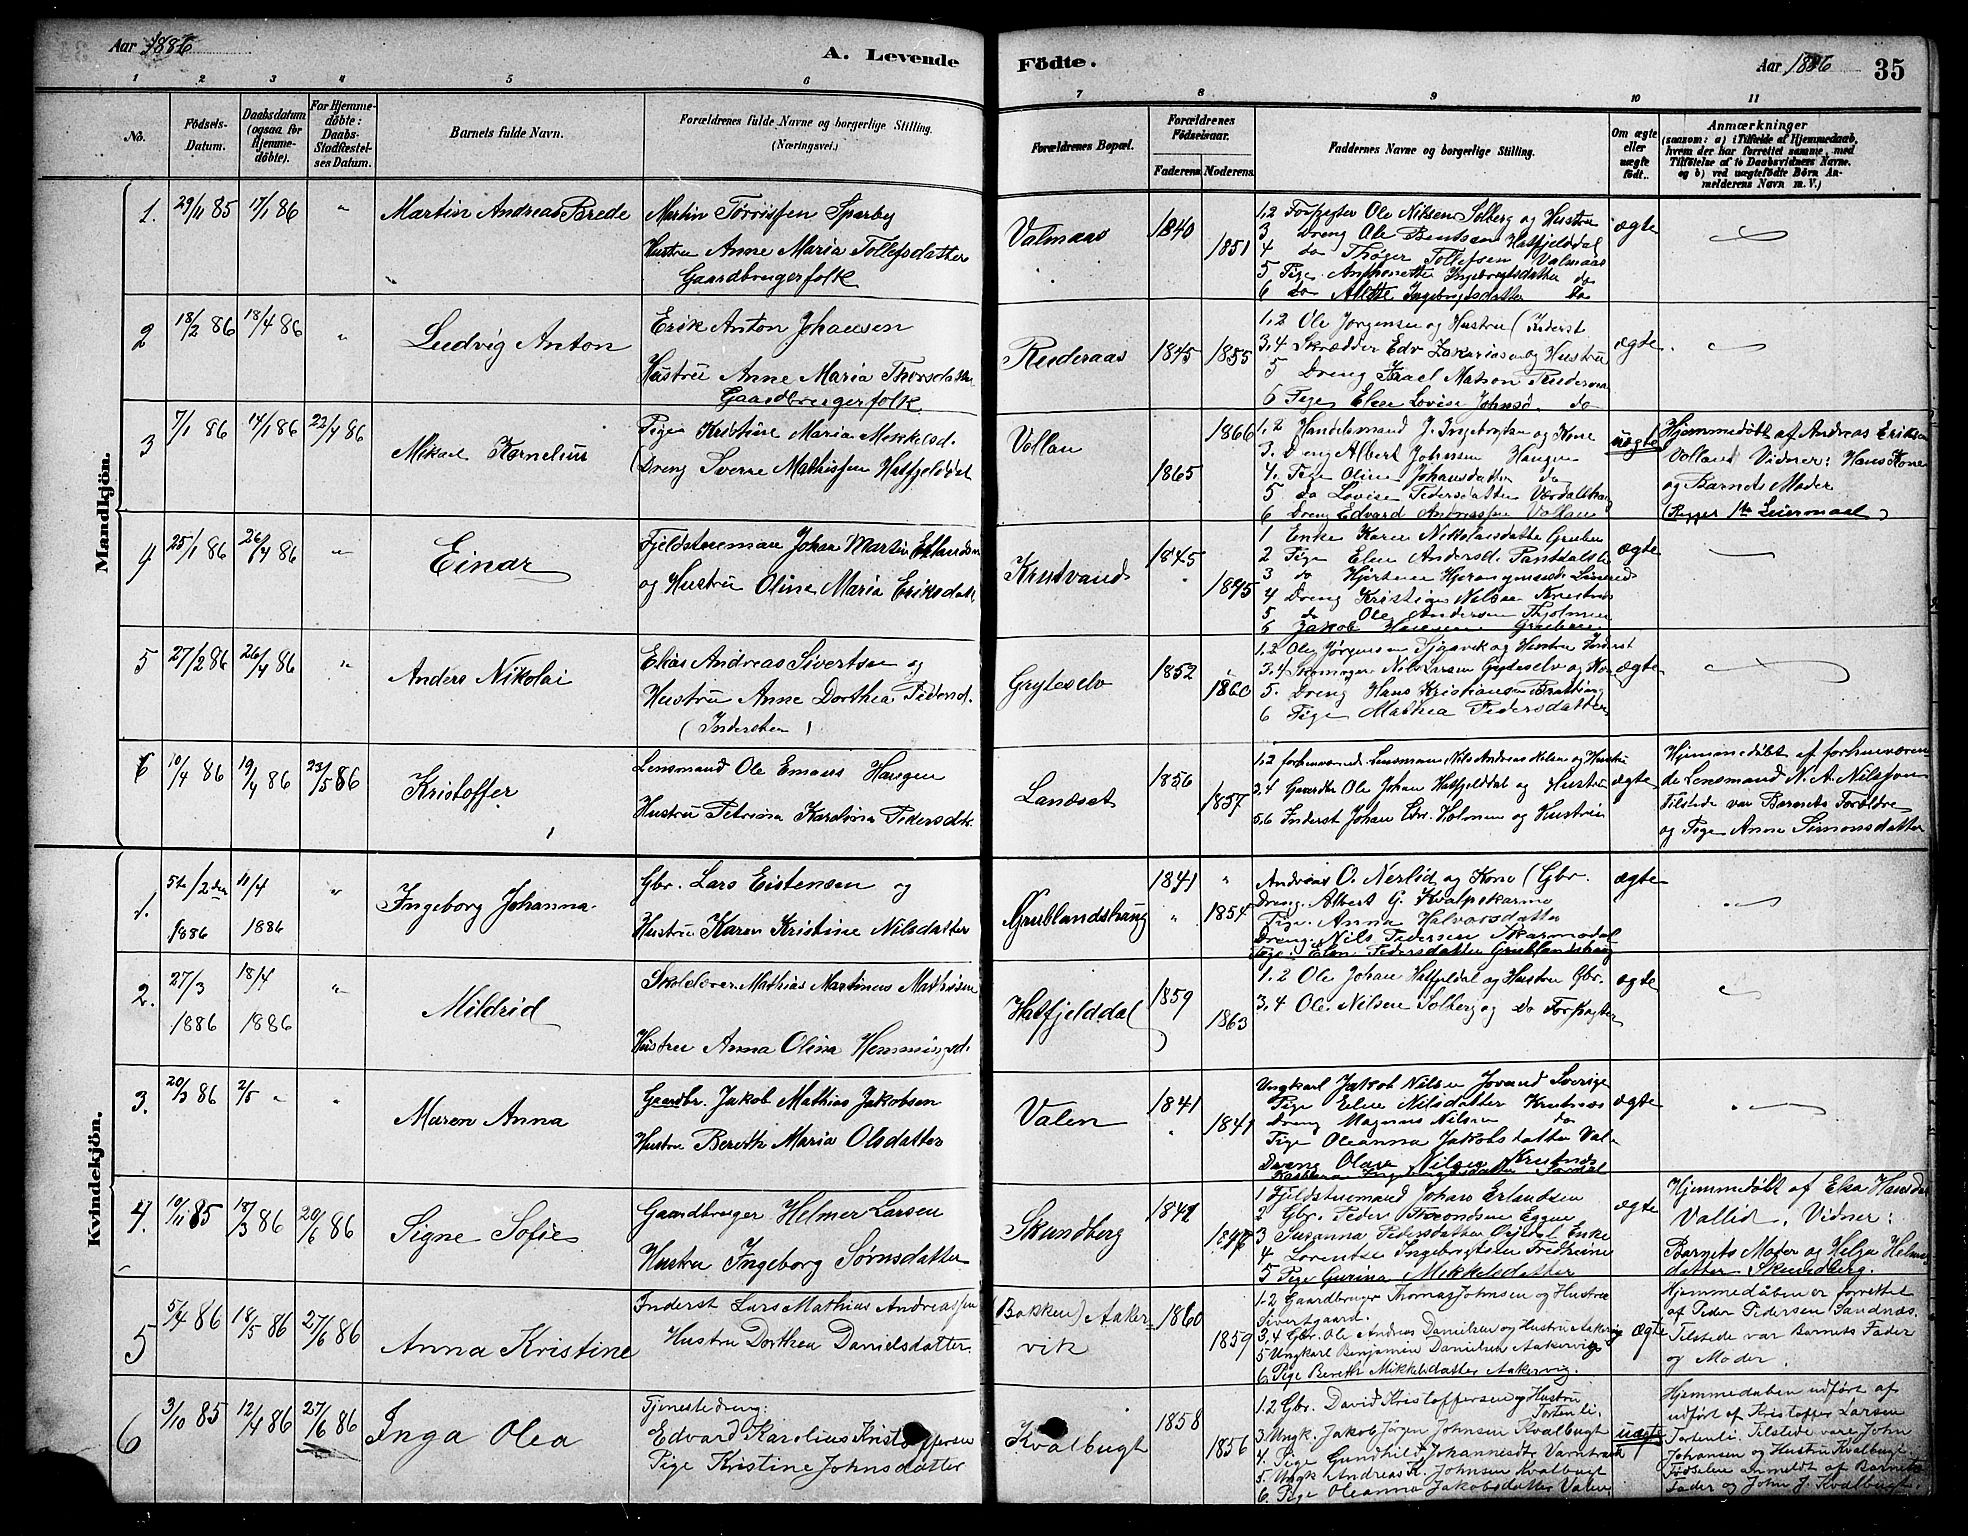 Aar 1886
A. Levende Födte.
Aar 1886 35
1 2 3 4 5 6 7 8 9 10 11
No.
Födsels-Datum.
Daabsdatum (ogsaa for Hjemme-döbte).
For Hjemme-döbte: Daabs-Stadfæstel-ses Datum.
Barnets fulde Navn.
Forældrenes fulde Navne og borgerlige Stilling. (Næringsvei.)
Forældrenes Bopæl.
Forældrenes Födselsaar.
Faderens. Moderens.
Faddernes Navne og borgerlige Stilling.
Om ægte eller uægte födt.
Anmærkninger
(saasom: a) i Tilfælde af Hjemmedaab,
hvem der har forrettet samme, med
Tilföielse af to Daabsvidners Navne.
og b) ved uægtefödte Börn An-
melderens Navn m. V.)
Mandkjön.
1. 29/11 85 17/1 86 " Martin Andreas Brede
Martin Tørrissen Sparby
Hustru Anne Maria Tollefsdatter
Gaardbrugerfolk
Valmaas 1840 1851
1,2 Forpagter Ole Nilsen Solberg og Hustru
3 Dreng Ole Bentsen Hatfjelddal
4 do Thøger Tollefsen Valmaas
5 Pige Anthonette Ingebrigtsdatter do
6 do Alette Ingebrigtsdatter do
ægte
2 18/2 86 18/4 86 " Ludvig Anton
Erik Anton Johansen
Hustru Anne Maria Thorsdatter
Gaardbrugerfolk.
1845 1855
1,2 Ole Jørgensen og Hustru (Inderst
3,4 Skrædder Edv Zakariasen og Hustru
5 Dreng Israel Matson
6 Pige Elen Lovise Johnsd. do
ægte
3 7/1 86 14/1 86 22/4 86 Mikael Kornelius
Pige Kristine Maria Mikkelsd.
(Dreng Sverre Mathissen Hatfjelddal
Vollan 1866 1865
1,2 Handelsmand J. Ingebrigtsen og Kone
3. Dreng Albert Johnsen Haugen
4. Pige Oline Johansdatter do
5 do Lovise Pedersdatter
6 Dreng Edvard Andreassen Vollan
uægte
Hjemmedøbt af Andreas Eriksen
Vollan Vidner: Hans Kone
og Barnets Moder
(Begges 1ste Leiermaal)
4 25/1 86 26/4 86 " Einar
Fjeldstuemand Johan Martin Erlandsen
og Hustru Oline Maria Eriksdatter
Krutvand 1845 1845
1 Enke Karen Nikolaisdatter Gruben
2 Pige Elen Andersd.
3 do
4 Dreng Kristian Nilsen Krutnes
5 do Ole Andersen
6 Jakob Hansen Gruben
ægte
5 27/2 86 26/4 86 " Anders Nikolai
Elias Andreas Sivertsen og
Hustru Anne Dorthea Pedersd.
(Indersten)
Gryteselv 1852 1860
1,2 Ole Jørgensen og Hustru Inderst
3,4 Nils Larsen Gryteselv og Kone
5. Dreng Hans Kristiansen
6 Pige Mathea Pedersdatter
ægte
6 10/4 86 19/4 86 23/5 86 Kristoffer
Lensmand Ole Emaus Haugen
Hustru Petrina Karolina Pedersdtr.
Landset 1856 1857
1,2 forhenværende Lensmann Nils Andreas Nilsen og Hustru
3,4 Gaardbr Ole Johan Hatfjelddal og Hustru
5,6 Inderst Johan Chr. Holmen og Hustru
ægte
Hjemmedøbt af forhenværen-
de Lensmand N. A. Nilsson
Tilstede var Barnets Forældre
og Pige Anne Simonsdatter
Kvindekjön.
1. 5te/2den 1886 11/4 1886 " Ingeborg Johanna
Gbr. Lars Eistensen og
Hustru Karen Kristine Nilsdatter
Grublandshaug 1841 1854
Andreas O. Nerlid og Kone (Gbr.
Dreng. Albert G. Kvalpskarmo
Pige. Anna Halvorsdatter
Dreng. Nils Pedersen Skarmodal
Pige: Elen Pedersdatter Grublandshaug
ægte
2. 27/3 1886 18/4 1886 " Mildrid
Skolelærer Mathias Martinus Mathissen
Hustru Anna Olina Hemmingsd.
Hatfjelddal 1859 1863
1,2 Ole Johan Hatfjeldal og Hustru Gbr.
3,4 Ole Nilsen Solberg og Do Forpagter
ægte
3. 20/3 86 2/5 " " Maren Anna
Gaardbr. Jakob Mathias Jakobsen
Hustru Bereth Maria Olsdatter
Valen 1841 1841
Ungkarl Jakob Nilsen Jovand Sverige
Pige Elen Nilsdatter Krutnæs
Dreng Magnus Nilsen do
Pige Oleanna Jakobsdatter Valen
Dreng Olav Nilsen Krutnæs
ægte
4. 10/11 85 18/3 86 20/6 86 Signe Sofie
Gaardbruger Helmer Larsen
Hustru Ingeborg Sørnsdatter
Skundberg 1842 1847
1 Fjeldstuemand Johan Erlandsen
2 Gbr. Peder
3 Susanna Pedersdatter Enke
4 Lorentse Ingebrigtsdtr
5 Pige Gurina Mikkelsdatter
ægte
Hjemmedøbt af Elsa Hansdtr
Vallid. Vidner:
Barnets Moder og Helga Helmers-
datter Skundberg.
5 5/4 86 18/5 86 27/6 86 Anna Kristine
Inderst Lars Mathias Andreassen
Hustru Dorthea Danielsdatter
(Bakken) Aaker-
vik 1860 1859
1.2 Gaardbruger Thomas Johnsen og Hustru
Sivertgaard.
3,4 Gbr. Ole Andreas Danielsen og Hustru Aakervig
5 Ungkarl Benjamin Danielsen Aakervig
6. Pige Bereth Mikkelsdatter Aakervig.
ægte
Hjemmedåben er forrettet
af Peder Pedersen Sandnæs.
Tilstede var Barnets Fader
og Moder.
6 3/10 85 12/4 86 27/6 86 Inga Olea
Tjenestedreng:
Edvard Karelius Kristoffersen
Pige Kristine Johnsdatter
Kvalbugt 1858 1856
1.2 Gbr. David Kristoffersen og Hustru
Tortenli.
3. Ungk. Jakob Jørgen Johnsen Kvalbugt
4. Pige Gundhild Johannesdtr. Varntræsk
5. Ungk Andreas K. Johnsen Kvalbugt
6. Pige Oleanna Jakobsdatter Valen.
uægte
Hjemmedåben udført af
udført af Kristoffer Larsen
Tortenli. Tilstede vare John
Johansen og Hustru Kvalbugt.
Fødselen anmeldt af Barnets
Fader og John J. Kvalbugt.